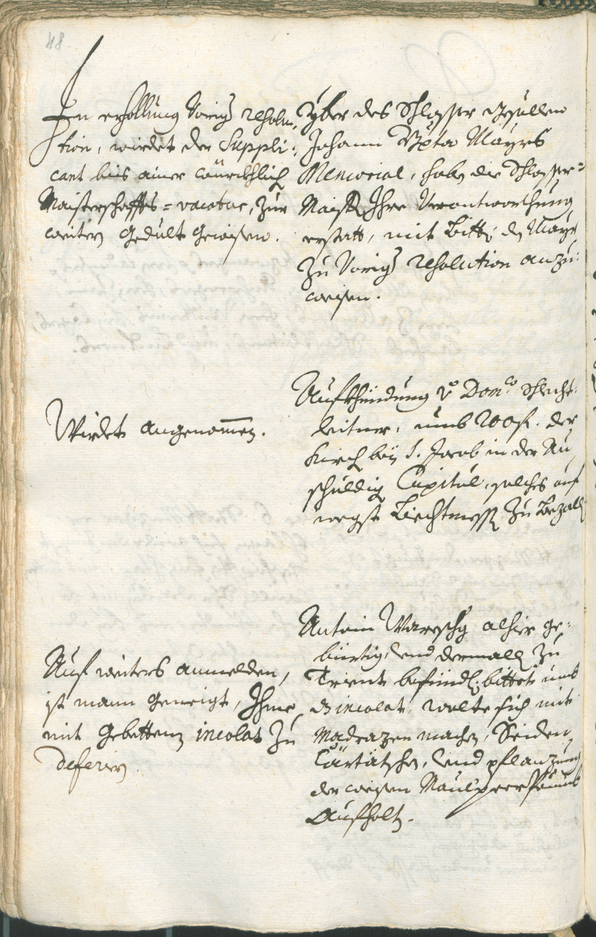 48
In erhollung vorig resolu-
tion, wirdet der Suppli-
cant bis ainer würckhlich
Maisterschaffts-vacatur, zur
weitern gedult gewisen.
Yber des Schlosser Gesöllen
Johann Mayrs
Memorial, habn die Schlosser-
Maistr Ihre Verantworthung
erstatt, mit Bitt, den Mayr
zu vorig resolution anzu-
weisen.
Wirdet angenommen.
Aufkhündung Schlecht-
leitner, umb 200 f. der
Kirch bey S. Jacob in der Au
schuldig Capital, solches auf
negst Liechtmess zu bezalln
Auf weiters anmelden,
ist man geneigt, Ihme
mit gebettenen incolat zu
deferirn
Antoin alhier ge-
bürtig, und dermalln zu
Trient befindl. bittet umb
ds incolat, wolte sich mit
Madrazen machen, Seiden
Cartätschen, und pflanzung
der weissen Maulpeerpäumb
Aufhaltn.